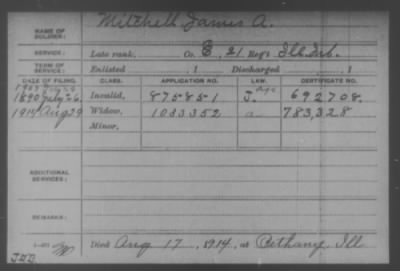 Mitchell James A.
NAME OF SOLDIER:
SERVICE: Late rank, Co. E, 21 Reg't Ill. Inf.
TERM OF SERVICE: Enlisted , 1 Discharged , 1
DATE OF FILING. CLASS. APPLICATION NO. LAW. CERTIFICATE NO.
1890 July 26. Invalid, 875851 J. 692708.
1914 Aug 29 Widow, 1033352 a. 783,328
Minor,
ADDITIONAL SERVICES:
REMARKS:
Died Aug 17, 1914, at Bethany, Ill